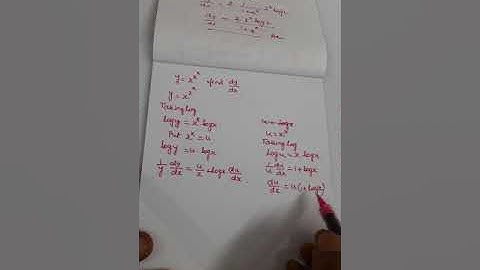 dy/dx = 2 x² log x
y = x^x^x find dy/dx
y = x^x^x
Taking log
log y = x^x log x
Put x^x = u
log y = u log x
1/y dy/dx = u/x + log x du/dx
u = x^x
Taking log
log u = x log x
1/u du/dx = 1 + log x
du/dx = u(1 + log x)